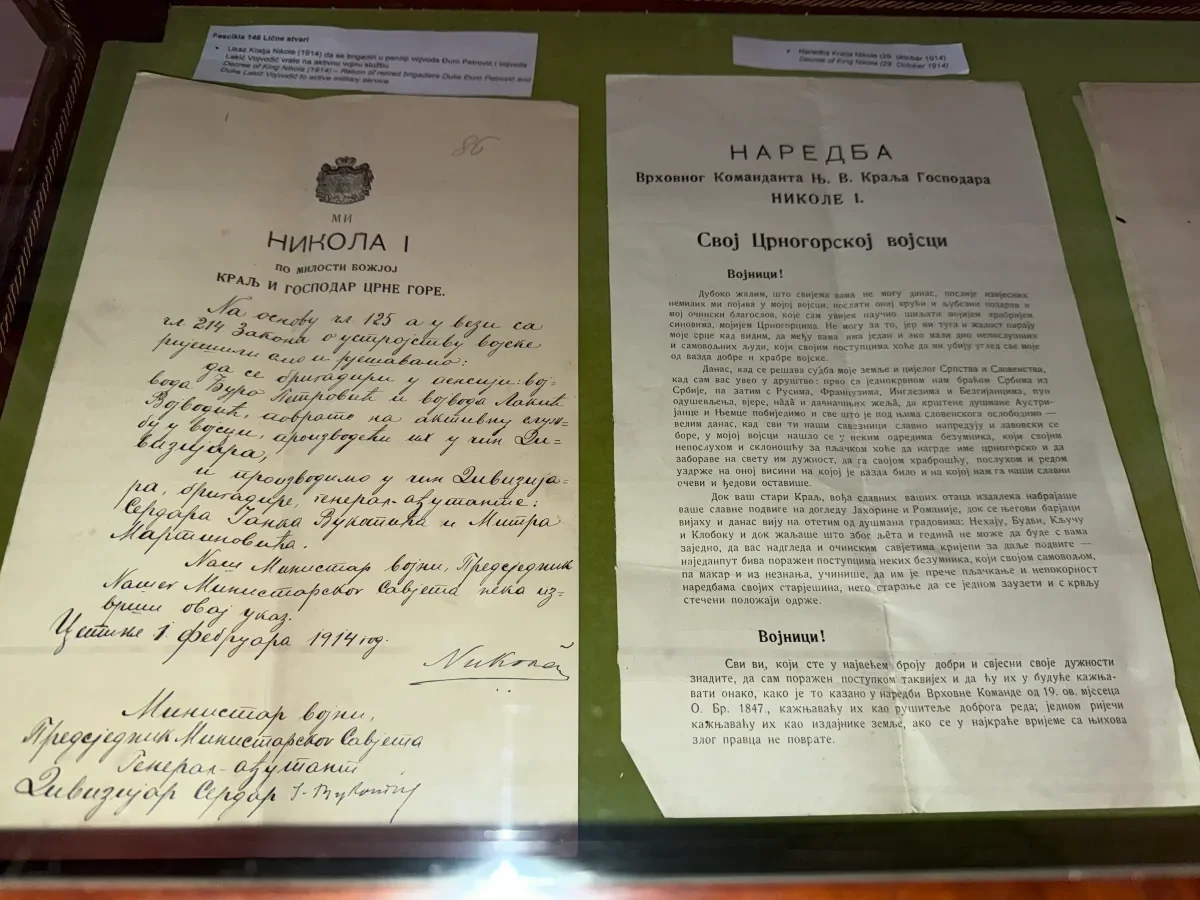 Fascikla 148 Lične stvari
Ukaz Kralja Nikole (1914) da se brigadiri u penziji vojvoda Đuro Petrović i vojvoda
Lakić Vojvodić vrate na aktivnu vojnu službu
Decree of King Nikola (1914) – Return of retired brigadiers Duke Đuro Petrović and
Duke Lakić Vojvodić to active military service.
86
МИ
НИКОЛА I
ПО МИЛОСТИ БОЖЈОЈ
КРАЉ И ГОСПОДАР ЦРНЕ ГОРЕ.
На основу чл. 125 а у вези са
чл. 214 Закона о устројству војске
ријешили смо и рјешавамо:
да се бригадири у пенсији: вој-
вода Ђуро Петровић и војвода Лакић
Војводић, поврате на активну служ-
бу у војсци, производећи их у чин Ди-
визијара,
и производимо у чин Дивизија-
ра, бригадире, генерал-ађутанте:
Сердара Јанка Вукотића и Митра
Мартиновића.
Наш Министар војни, Предсједник
Нашег Министарског Савјета нека из-
врши овај указ.
Цетиње 1 фебруара 1914 год.
Никола
Министар војни,
Предсједник Министарског Савјета
Генерал-ађутант
Дивизијар Сердар Ј. Вукотић
Naredba Kralja Nikole (29. oktobar 1914)
Decree of King Nikola (29. October 1914)
НАРЕДБА
Врховног Команданта Њ. В. Краља Господара
НИКОЛЕ I.
Свој Црногорској војсци
Војници!
Дубоко жалим, што свијема вама не могу данас, послије извјесних
немилих ми појава у мојој војсци, послати онај врући и љубезни поздрав и
мој очински благослов, које сам увијек научио шиљати мојијем храбријем
синовима, мојијем Црногорцима. Не могу за то, јер ми туга и жалост парају
моје срце кад видим, да међу вама има један и ако мали дио непослушних
и самовољних људи, који својим поступцима хоће да ми убију углед све моје
од вазда добре и храбре војске.
Данас, кад се решава судба моје земље и цијелог Српства и Словенства,
кад сам вас увео у друштво: прво са једнокрвном нам браћом Србима из
Србије, па затим с Русима, Французима, Инглезима и Безгијанцима, пун
одушевљења, вјере, нâдâ и дачнашњих жеља, да крштене душмане Аустри-
јанце и Њемце побиједимо и све што је под њима словенскога ослободимо —
велим данас, кад сви ти наши савезници славно напредују и лавовски се
боре, у мојој војсци нашло се у неким одредима безумника, који својим
непослухом и склоношћу за пљачком хоће да нагрде име црногорско и да
забораве на свету им дужност, да га својом храброшћу, послухом и редом
уздрже на оној висини на којој је вазда било и на којој нам га наши славни
очеви и ђедови оставише.
Док ваш стари Краљ, вођа славних ваших отаца издалека набрајаше
ваше славне подвиге на догледу Јахорине и Романије, док се његови барјаци
вијаху и данас вију на отетим од душмана градовима: Нехају, Будви, Кључу
и Клобоку и док жаљаше што због љѐта и година̂ не може да буде с вама
заједно, да вас надгледа и очинским савјетима кријепи за даље подвиге —
наједанпут бива поражен поступцима неких безумника, који својом самовољом,
па макар и из незнања, учинише, да им је прече пљачкање и непокорност
наредбама својих старјешина, него старање да се једном заузети и с крвљу
стечени положаји одрже.
Војници!
Сви ви, који сте у највећем броју добри и свјесни своје дужности
знадите, да сам поражен поступком таквијех и да ћу их у будуће кажњa-
вати онако, како је то казано у наредби Врховне Команде од 19. ов. мјесеца
О. Бр. 1847., кажњаваћу их као рушитеље доброга реда; једном ријечи
кажњаваћу их као издајнике земље, ако се у најкраће вријеме са њихова
злог правца не поврате.